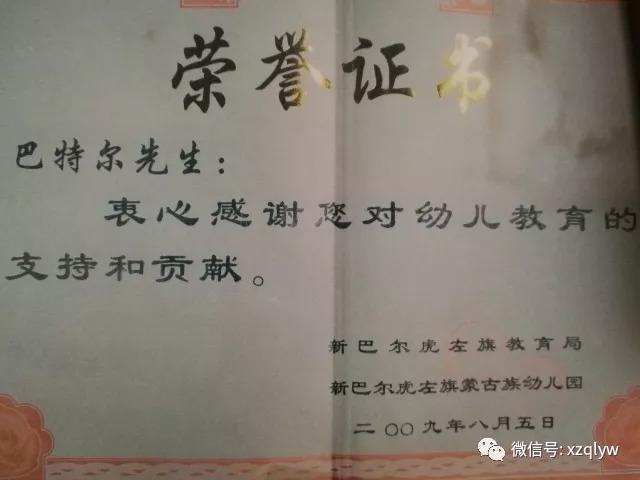 荣誉证书
巴特尔先生：
衷心感谢您对幼儿教育的
支持和贡献。
新巴尔虎左旗教育局
新巴尔虎左旗蒙古族幼儿园
二〇〇九年八月五日
微信号: xzqlyw